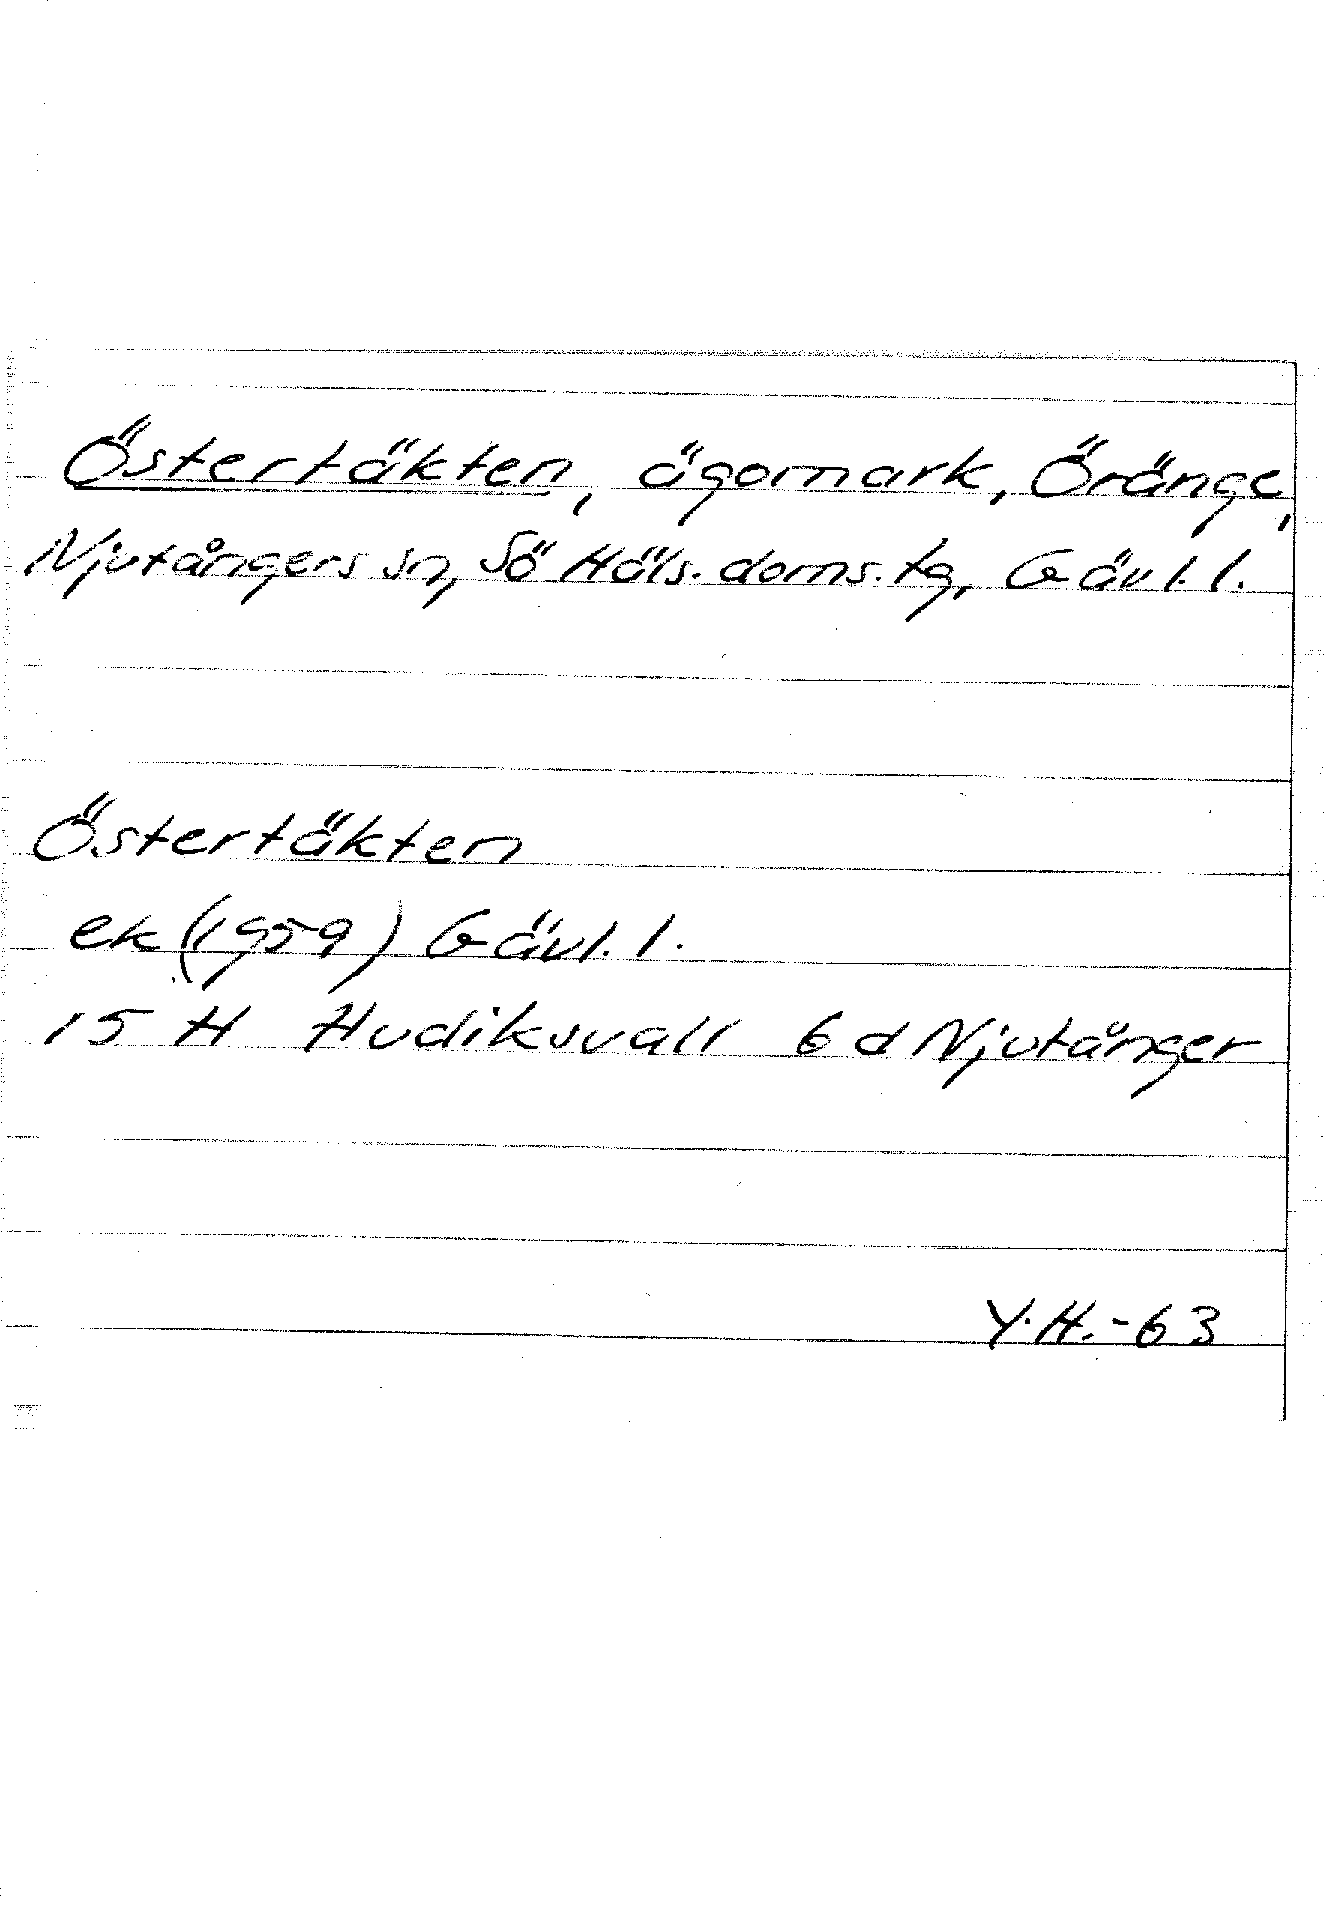 Östertäkten, ägomark, Öränge,
Njutångers sn, Sö Häls. doms. tg, Gävl. l.
Östertäkten
ek (1959) Gävl. l.
15 H Hudiksvall 6 d Njutånger
Y.H.-63